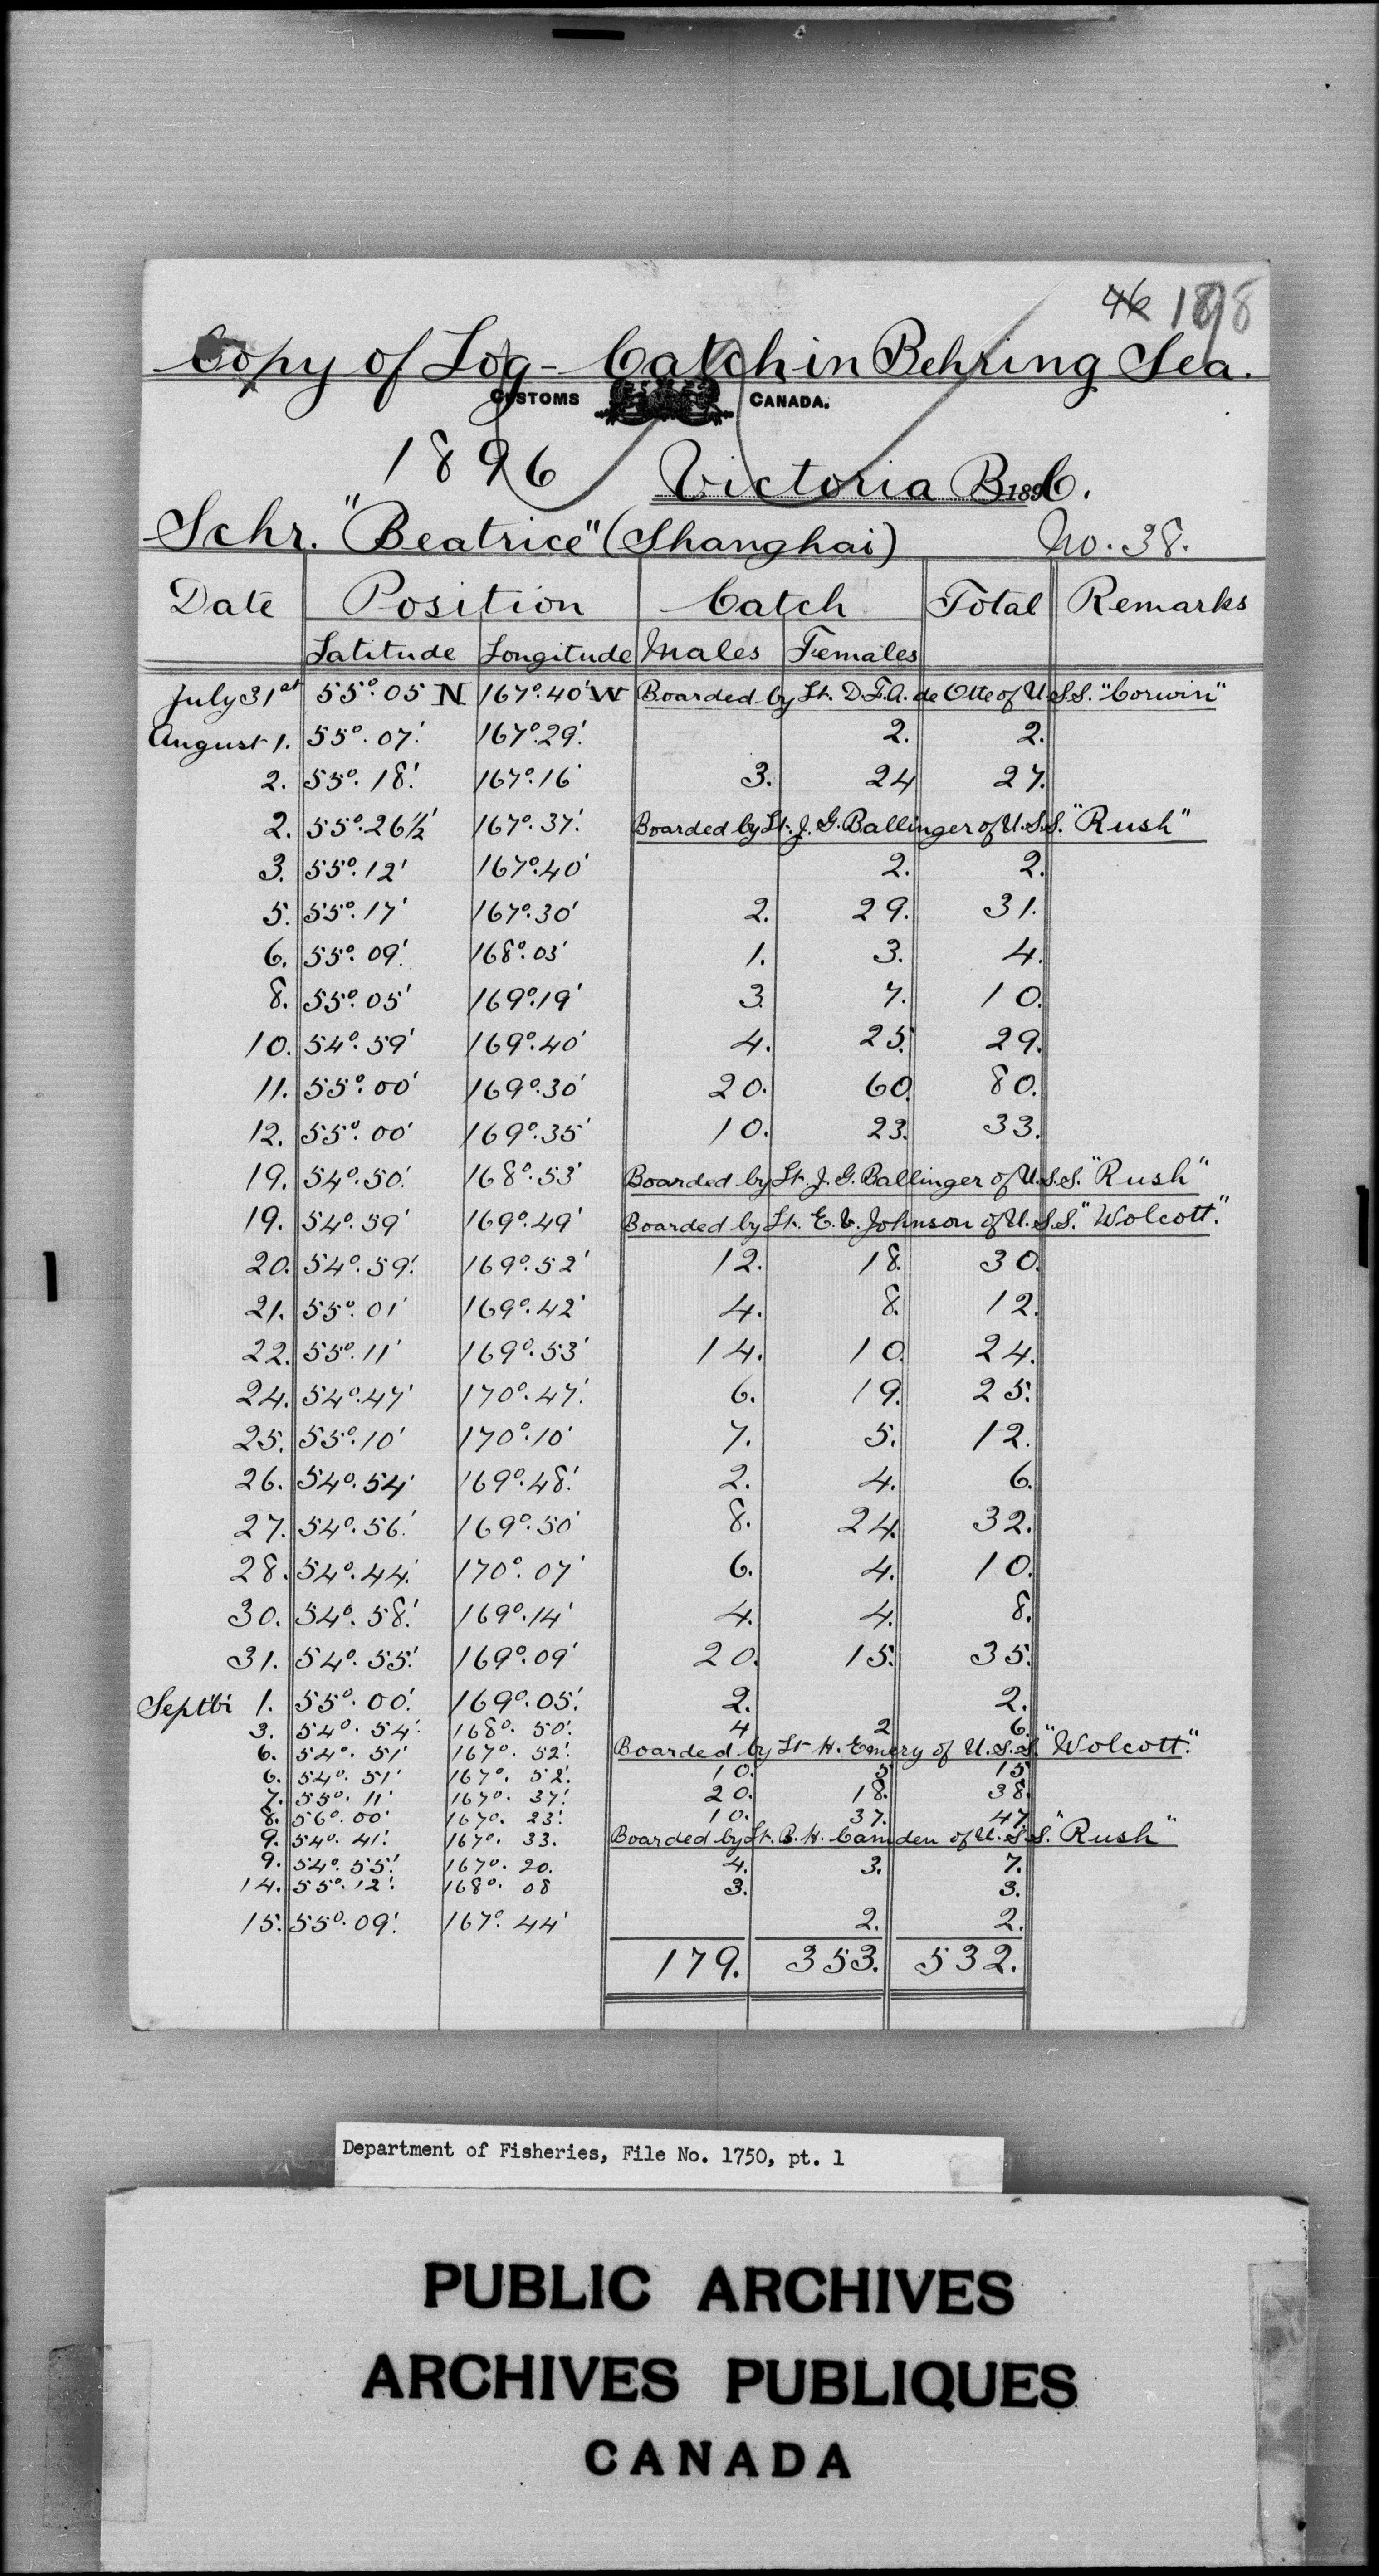 46 1898
Copy of Log - Catch in Behring Sea.
CUSTOMS CANADA.
1896 Victoria B.C. 189
Schr. "Beatrice" (Shanghai) No. 38.
Date Position Catch Total Remarks
Latitude Longitude Males Females
July 31st 55°. 05 N 167°. 40' W Boarded by Lt. D.F.A. de Otte of U.S.S. "Corwin"
August 1. 55°. 07'. 167°. 29'. 2. 2.
2. 55°. 18'. 167°. 16' 3. 24 27.
2. 55°. 26 1/2' 167°. 37'. Boarded by Lt. J. G. Ballinger of U.S.S. "Rush"
3. 55°. 12' 167°. 40' 2. 2.
5. 55°. 17' 167°. 30' 2. 29. 31.
6. 55°. 09'. 168°. 03' 1. 3. 4.
8. 55°. 05' 169°. 19' 3. 7. 10.
10. 54°. 59' 169°. 40' 4. 25. 29.
11. 55°. 00' 169°. 30' 20. 60. 80.
12. 55°. 00' 169°. 35' 10. 23. 33.
19. 54°. 50'. 168°. 53' Boarded by Lt. J. G. Ballinger of U.S.S. "Rush"
19. 54°. 59' 169°. 49' Boarded by Lt. E. C. Johnson of U.S.S. "Wolcott."
20. 54°. 59'. 169°. 52' 12. 18. 30.
21. 55°. 01' 169°. 42' 4. 8. 12.
22. 55°. 11' 169°. 53' 14. 10. 24.
24. 54°. 47' 170°. 47'. 6. 19. 25.
25. 55°. 10' 170°. 10' 7. 5. 12.
26. 54°. 54' 169°. 48'. 2. 4. 6.
27. 54°. 56'. 169°. 50' 8. 24. 32.
28. 54°. 44'. 170°. 07' 6. 4. 10.
30. 54°. 58'. 169°. 14' 4. 4. 8.
31. 54°. 55'. 169°. 09' 20. 15. 35.
Septbr 1. 55°. 00'. 169°. 05'. 2. 2.
3. 54°. 54'. 168°. 50'. 4 2 6.
6. 54°. 51' 167°. 52'. Boarded by Lt H. Emery of U.S.S. "Wolcott."
6. 54°. 51' 167°. 52'. 10. 5 15
7. 55°. 11' 167°. 37'. 20. 18. 38.
8. 56°. 00' 167°. 23'. 10. 37. 47.
9. 54°. 41'. 167°. 33. Boarded by Lt. B. H. Camden of U.S.S. "Rush"
9. 54°. 55'. 167°. 20. 4. 3. 7.
14. 55°. 12'. 168°. 08 3. 3.
15. 55°. 09'. 167°. 44' 2. 2.
179. 353. 532.
Department of Fisheries, File No. 1750, pt. 1
PUBLIC ARCHIVES
ARCHIVES PUBLIQUES
CANADA